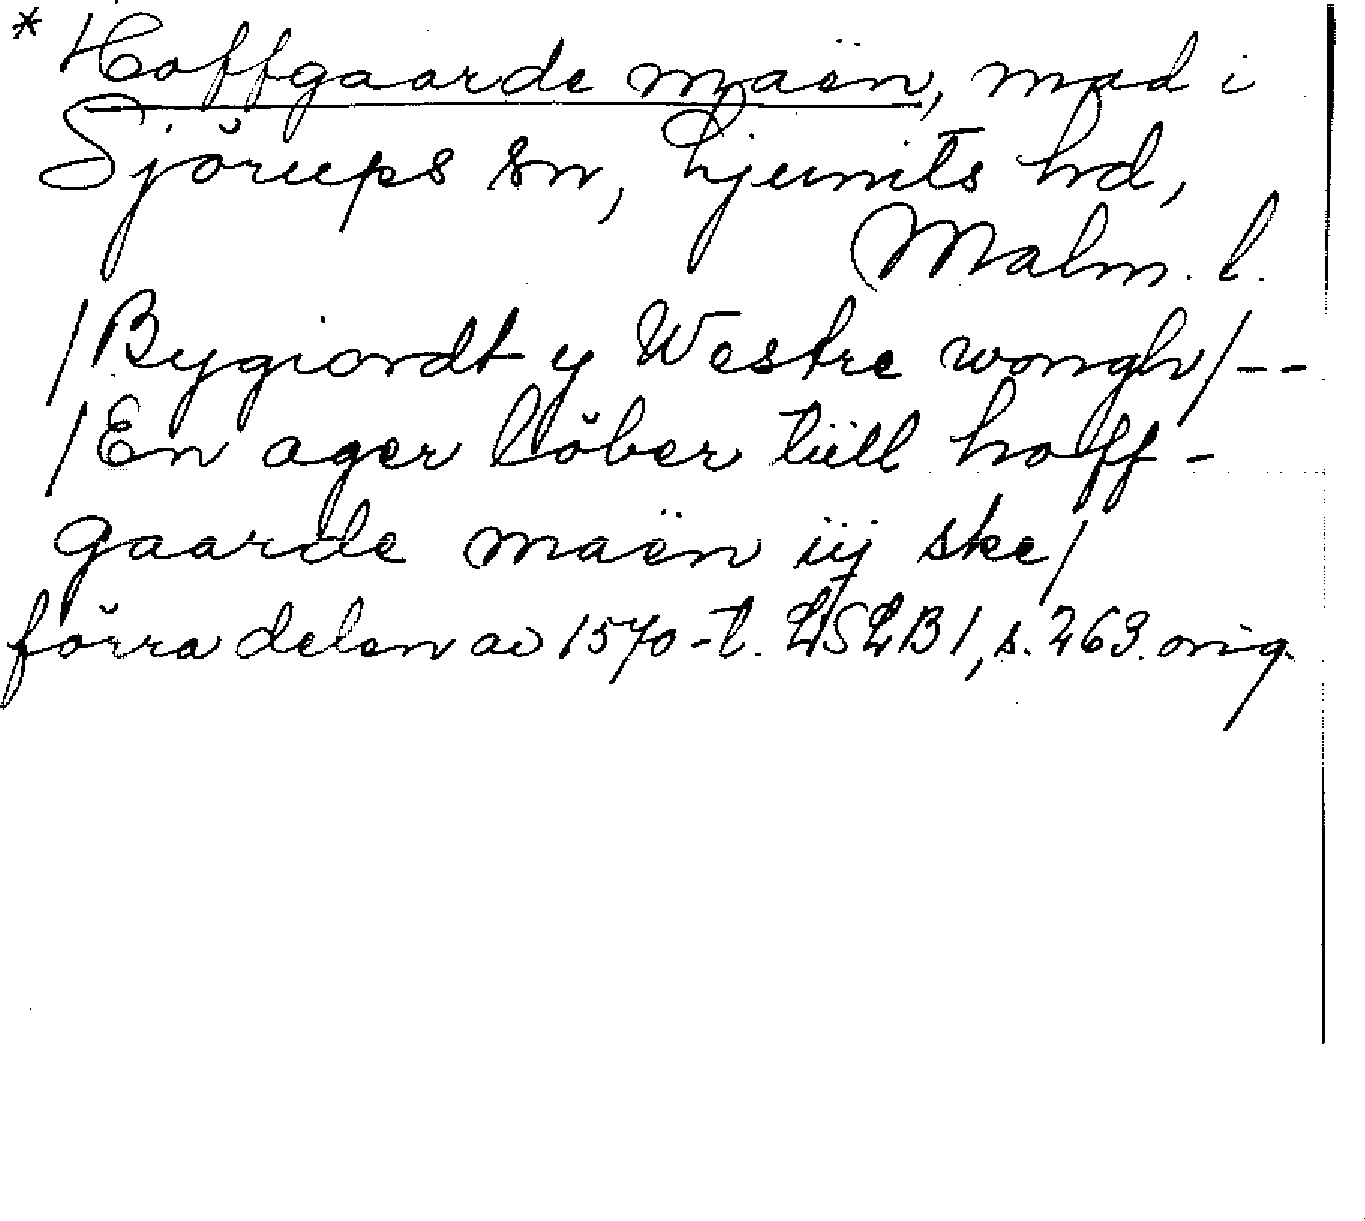 * Hoffgaarde maën, mad i
Sjörups sn, Ljunits hd,
Malm. l.
/Bygiordt y Westre wongh/--
/En ager löber tiill hoff-
gaarde maën iij ske/
förra delen av 1570-t. LSLB1, s. 263. orig.